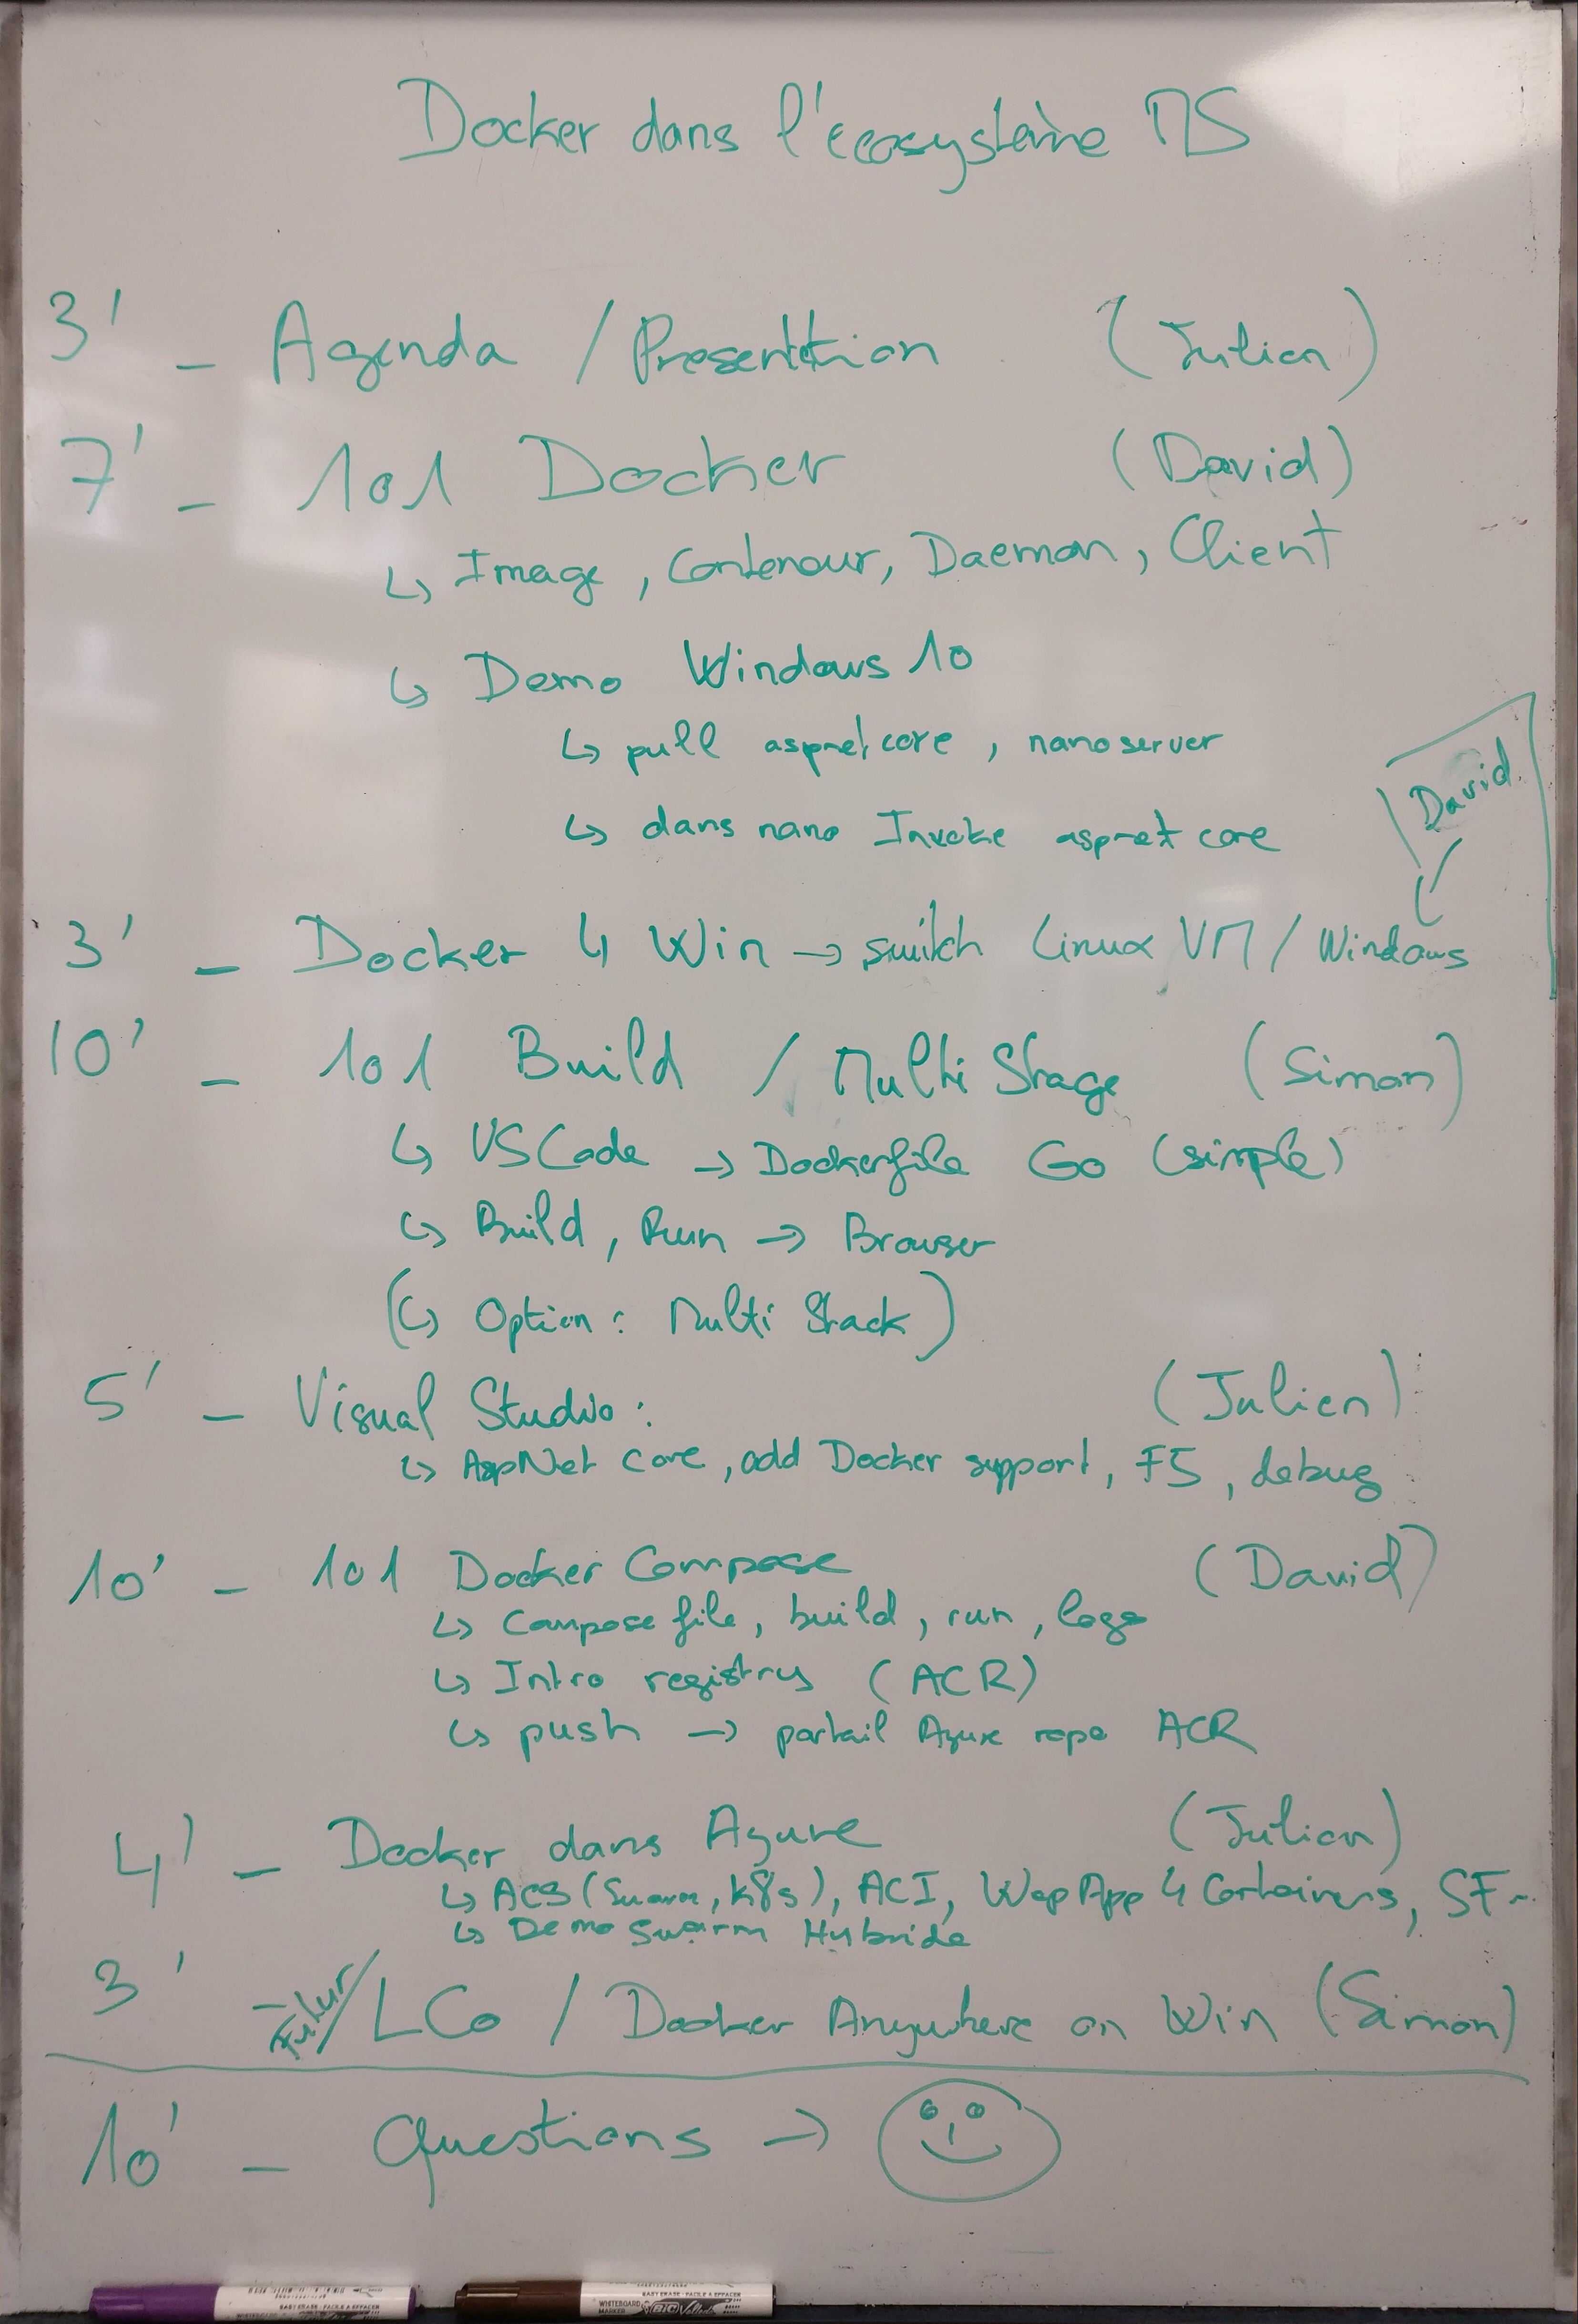 Docker dans l'écosystème MS
3' - Agenda / Présentation (Julien)
7' - 101 Docker (David)
↳ Image, Conteneur, Daemon, Client
↳ Demo Windows 10
↳ pull aspnetcore, nanoserver
↳ dans nano Invoke aspnet core
David
3' - Docker 4 Win → switch Linux VM / Windows
10' - 101 Build / Multi Stage (Simon)
↳ VSCode → Dockerfile Go (simple)
↳ Build, Run → Browser
(↳ Option : Multi Stack)
5' - Visual Studio : (Julien)
↳ AspNet Core, add Docker support, F5, debug
10' - 101 Docker Compose (David)
↳ Compose file, build, run, logs
↳ Intro registry (ACR)
↳ push → portail Azure repo ACR
4' - Docker dans Azure (Julien)
↳ ACS (Swarm, k8s), ACI, WepApp 4 Containers, SF...
↳ Demo Swarm Hybride
3' - Futur / LCo / Docker Anywhere on Win (Simon)
10' - Questions →
EASY ERASE - FACILE A EFFACER
EASY ERASE - FACILE A EFFACER
WHITEBOARD MARKER BIC Velleda